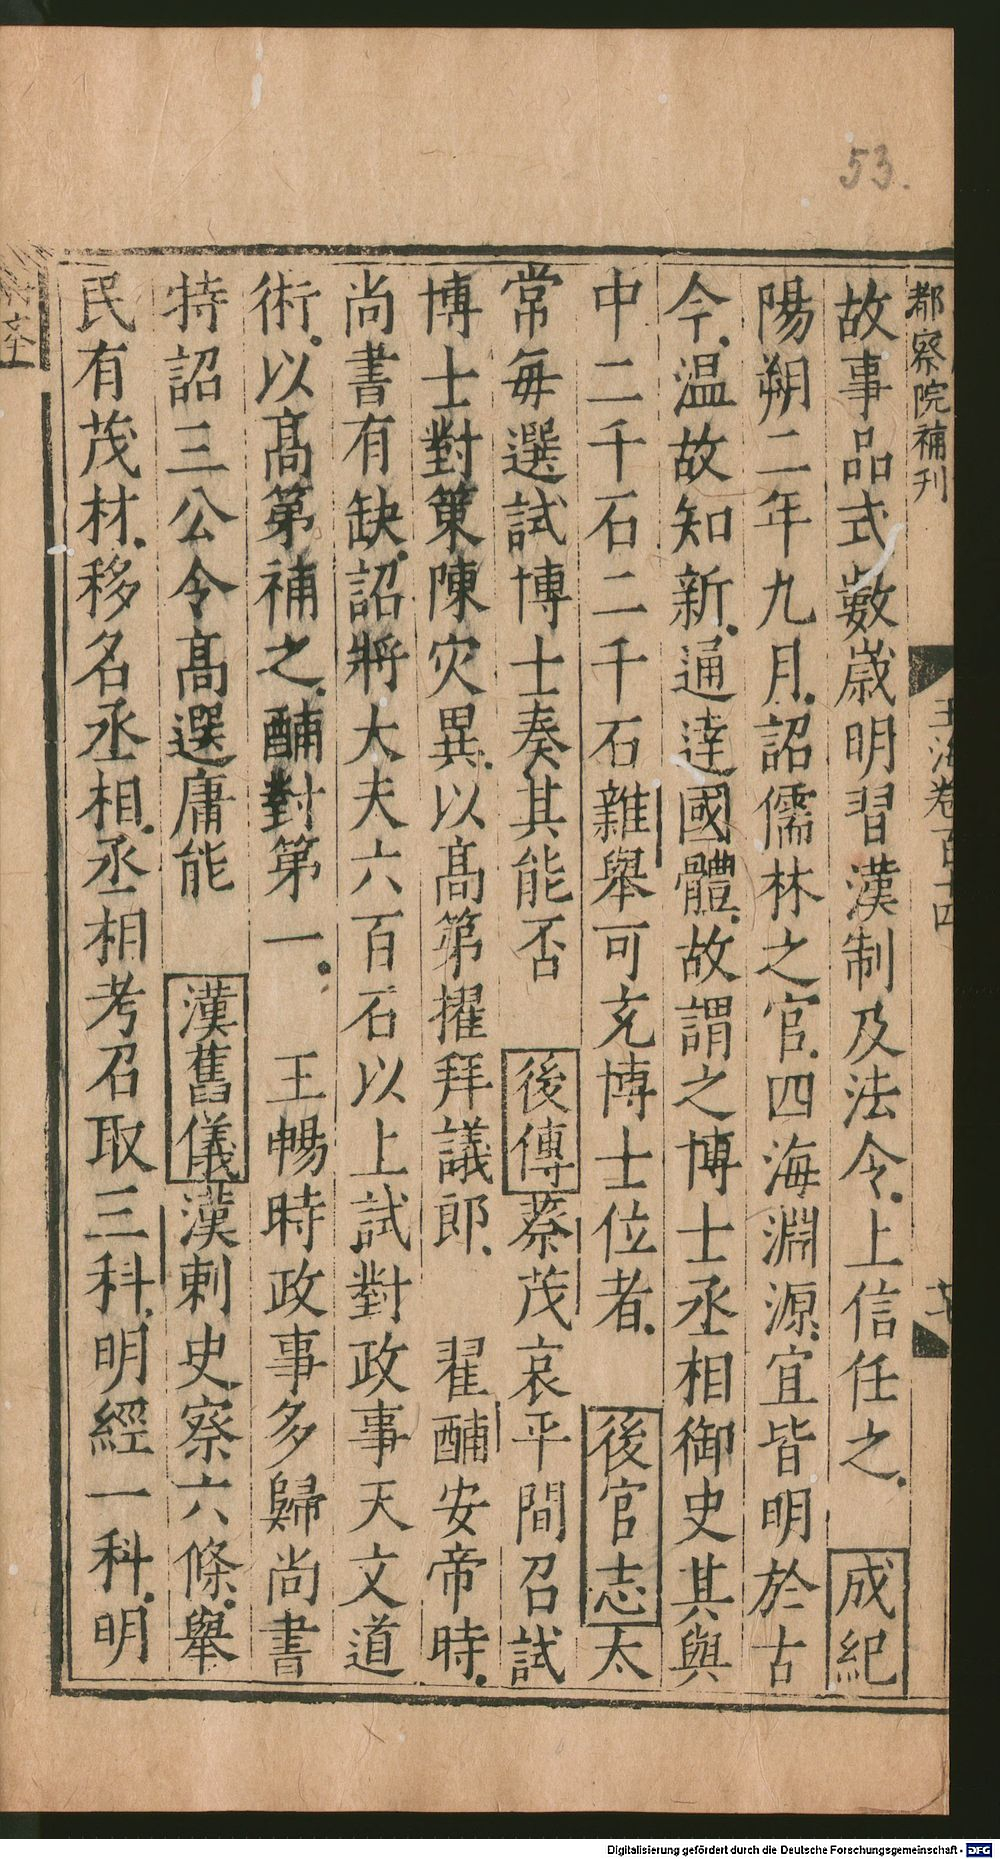 53.
都察院補刊
玉海卷百十四
故事品式數歲明習漢制及法令上信任之 成紀
陽朔二年九月詔儒林之官四海淵源宜皆明於古
今温故知新通達國體故謂之博士丞相御史其與
中二千石二千石雜舉可充博士位者 後官志太
常每選試博士奏其能否 後傳蔡茂哀平間召試
博士對策陳灾異以高第擢拜議郎 翟酺安帝時
尚書有缺詔將大夫六百石以上試對政事天文道
術以高第補之酺對第一 王暢時政事多歸尚書
特詔三公令高選庸能 漢舊儀漢刺史察六條舉
民有茂材移名丞相丞相考召取三科明經一科明
Digitalisierung gefördert durch die Deutsche Forschungsgemeinschaft - DFG